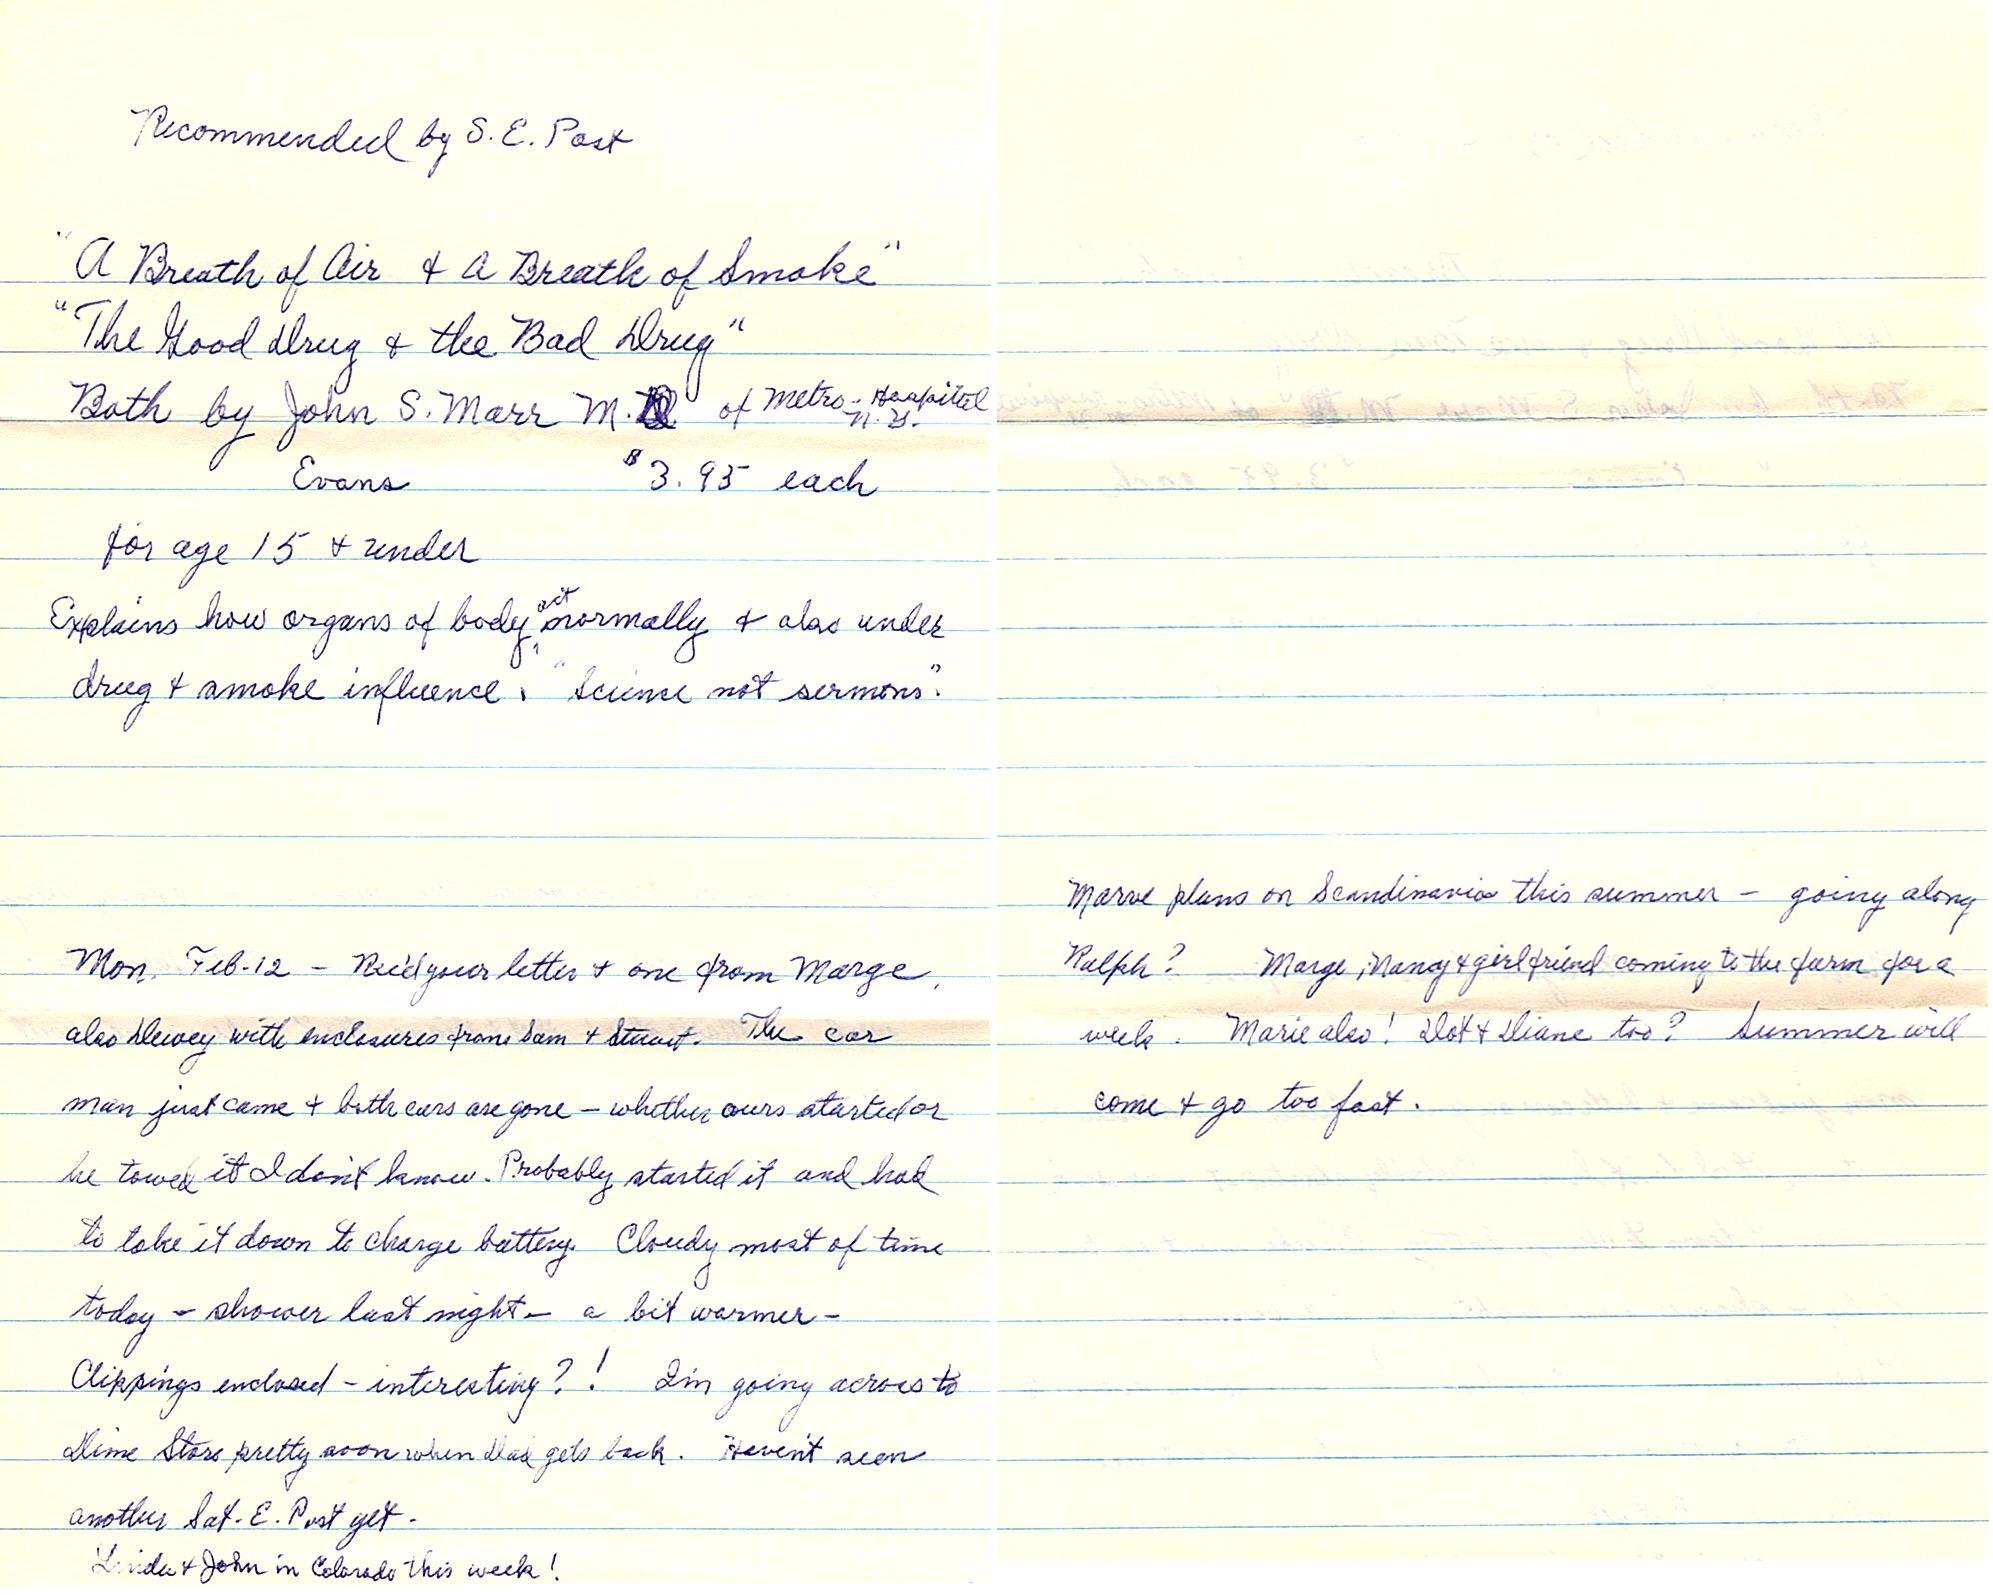 Recommended by S. E. Post
"A Breath of Air & A Breath of Smoke"
"The Good Drug & the Bad Drug"
Both by John S. Marr M.D. of Metro-Hospital
N.Y.
Evans $3.95 each
for age 15 & under
Explains how organs of body act normally & also under
drug & smoke influence. "Science not sermons".
Mon. Feb-12 - Rec'd your letter & one from Marge,
also Dewey with enclosures from Sam & Stuart. The car
man just came & both cars are gone - whether ours started or
he towed it I don't know. Probably started it and had
to take it down to charge battery. Cloudy most of time
today - shower last night - a bit warmer -
Clippings enclosed - interesting?! I'm going across to
Dime Store pretty soon when Dad gets back. Haven't seen
another Sat. E. Post yet.
Linda & John in Colorado this week!
Marve plans on Scandinavia this summer - going along
Ralph? Marge, Nancy & girlfriend coming to the farm for a
week. Marie also! Dot & Diane too? Summer will
come & go too fast.